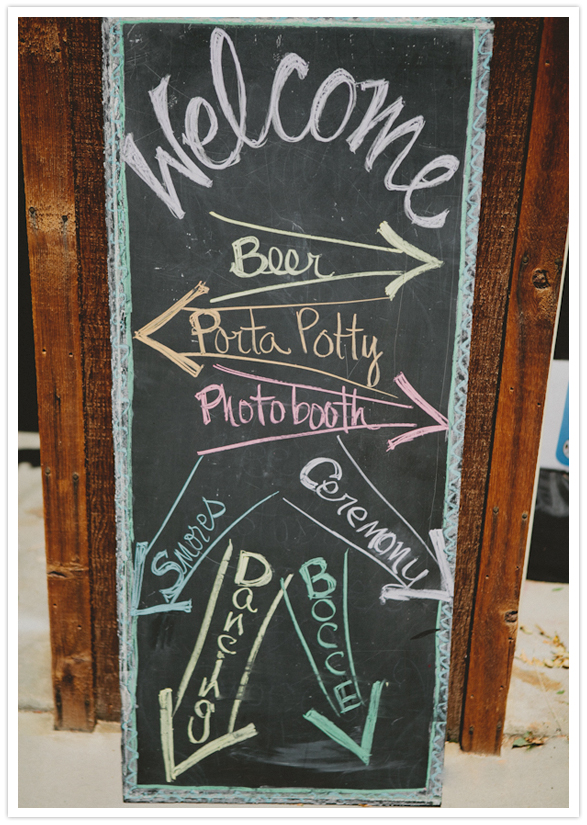 Welcome
Beer
Porta Potty
Photobooth
Ceremony
Smores
Dancing
Bocce